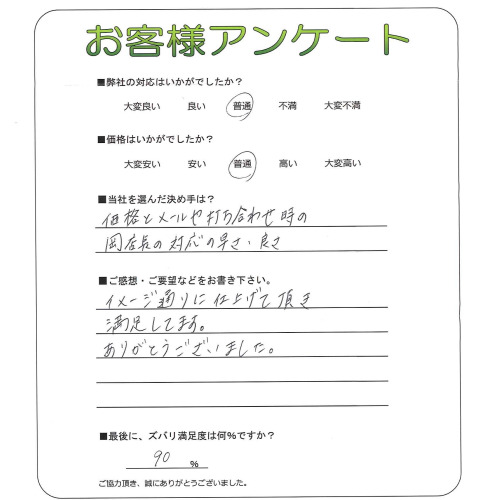 お客様アンケート
■弊社の対応はいかがでしたか?
大変良い 良い 普通 不満 大変不満
■価格はいかがでしたか?
大変安い 安い 普通 高い 大変高い
■当社を選んだ決め手は?
価格とメールや打ち合わせ時の
岡店長の対応の早さ・良さ
■ご感想・ご要望などをお書き下さい。
イメージ通りに仕上げて頂き
満足してます。
ありがとうございました。
■最後に、ズバリ満足度は何%ですか?
90 %
ご協力頂き、誠にありがとうございました。